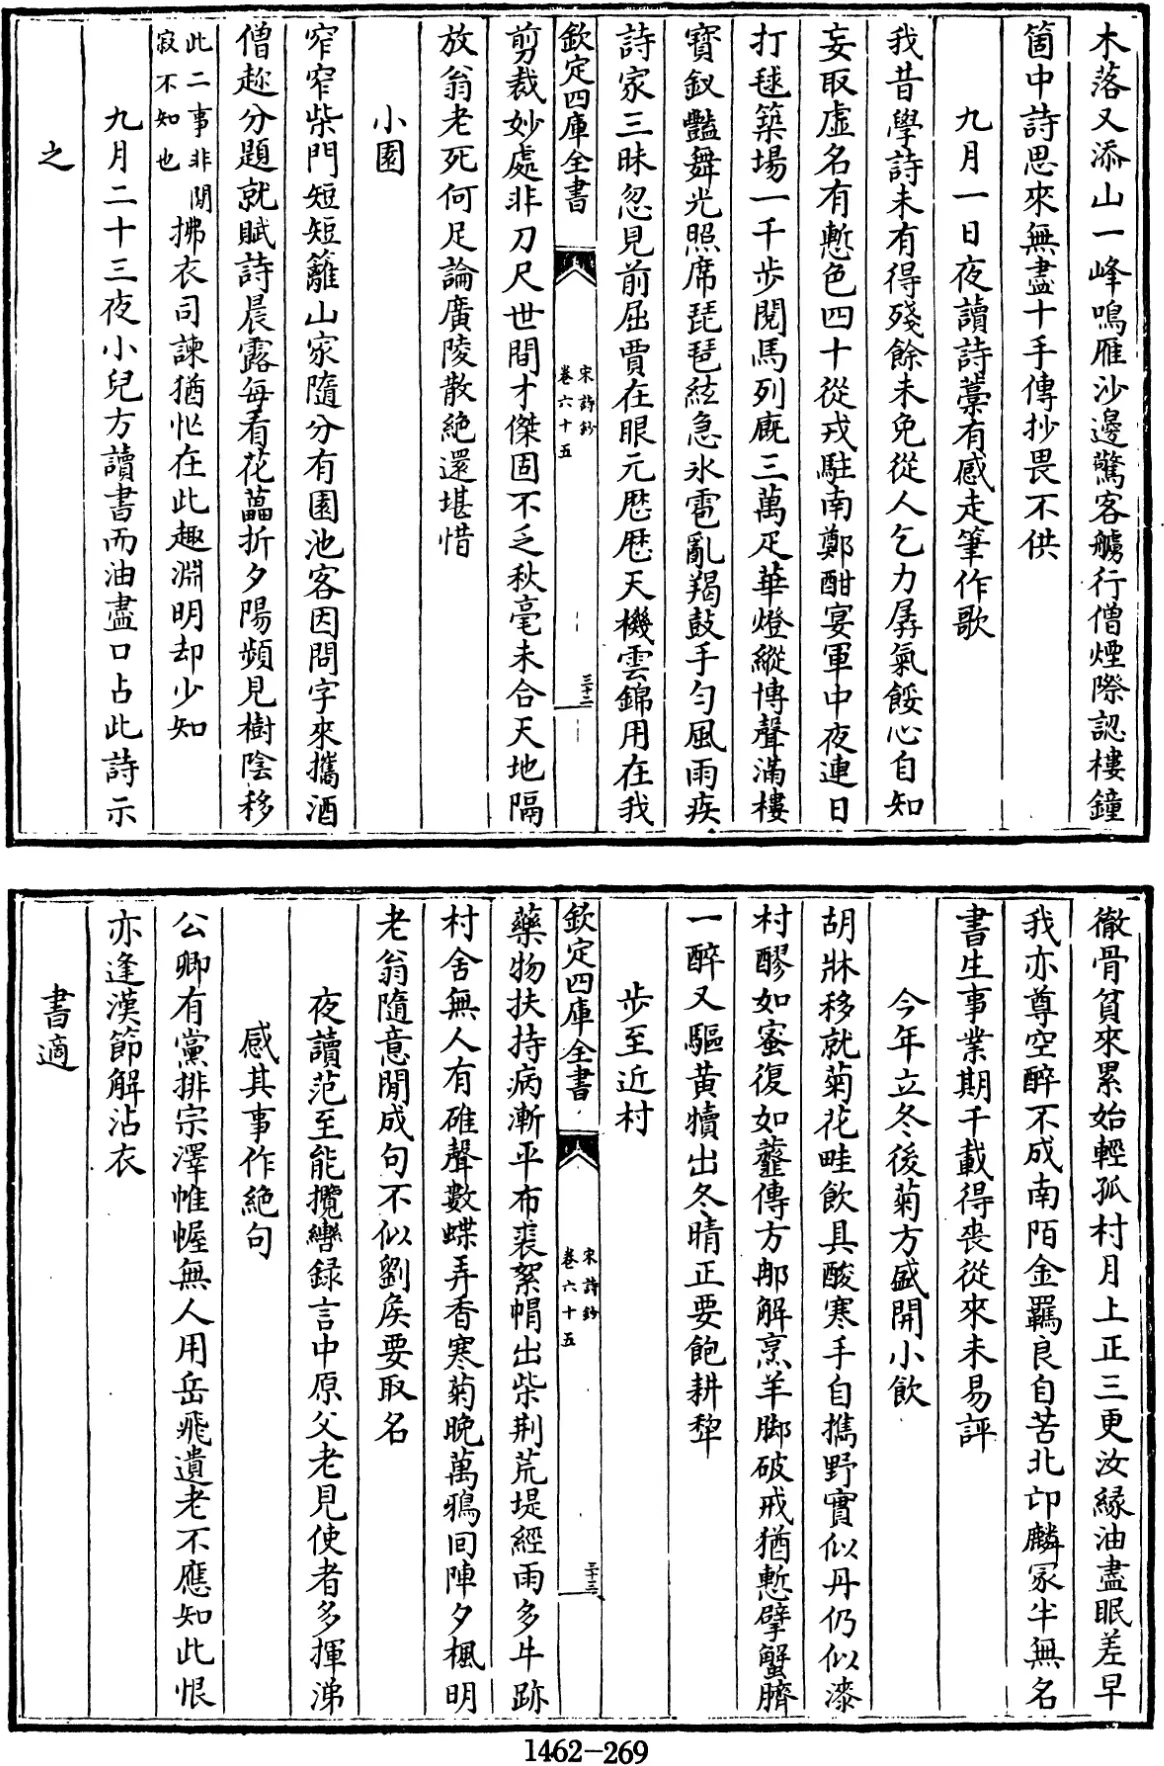 木落又添山一峰鳴雁沙邊驚客艣行僧煙際認樓鐘
箇中詩思來無盡十手傳抄畏不供
九月一日夜讀詩藁有感走筆作歌
我昔學詩未有得殘餘未免從人乞力孱氣餒心自知
妄取虛名有慙色四十從戎駐南鄭酣宴軍中夜連日
打毬築場一千步閱馬列廐三萬疋華燈縱博聲滿樓
寶釵豔舞光照席琵琶絃急氷雹亂羯鼓手勻風雨疾
詩家三昧忽見前屈賈在眼元歷歷天機雲錦用在我
欽定四庫全書
宋詩鈔
卷六十五
三十二
剪裁妙處非刀尺世間才傑固不乏秋毫未合天地隔
放翁老死何足論廣陵散絶還堪惜
小園
窄窄柴門短短籬山家隨分有園池客因問字來攜酒
僧趁分題就賦詩晨露每看花藟折夕陽頻見樹陰移
此二事非閒
寂不知也
拂衣司諫猶忙在此趣淵明却少知
九月二十三夜小兒方讀書而油盡口占此詩示
之
徹骨貧來累始輕孤村月上正三更汝緣油盡眠差早
我亦尊空醉不成南陌金羈良自苦北邙麟冢半無名
書生事業期千載得喪從來未易評
今年立冬後菊方盛開小飲
胡牀移就菊花畦飲具酸寒手自攜野實似丹仍似漆
村醪如蜜復如虀傳方那解烹羊脚破戒猶慙擘蟹臍
一醉又驅黄犢出冬晴正要飽耕犂
步至近村
欽定四庫全書
宋詩鈔
卷六十五
三十三
藥物扶持病漸平布裘絮帽出柴荆荒堤經雨多牛跡
村舍無人有碓聲數蝶弄香寒菊晚萬鴉回陣夕楓明
老翁隨意閒成句不似劉侯要取名
夜讀范至能攬轡録言中原父老見使者多揮涕
感其事作絶句
公卿有黨排宗澤帷幄無人用岳飛遺老不應知此恨
亦逢漢節解沾衣
書適
1462-269